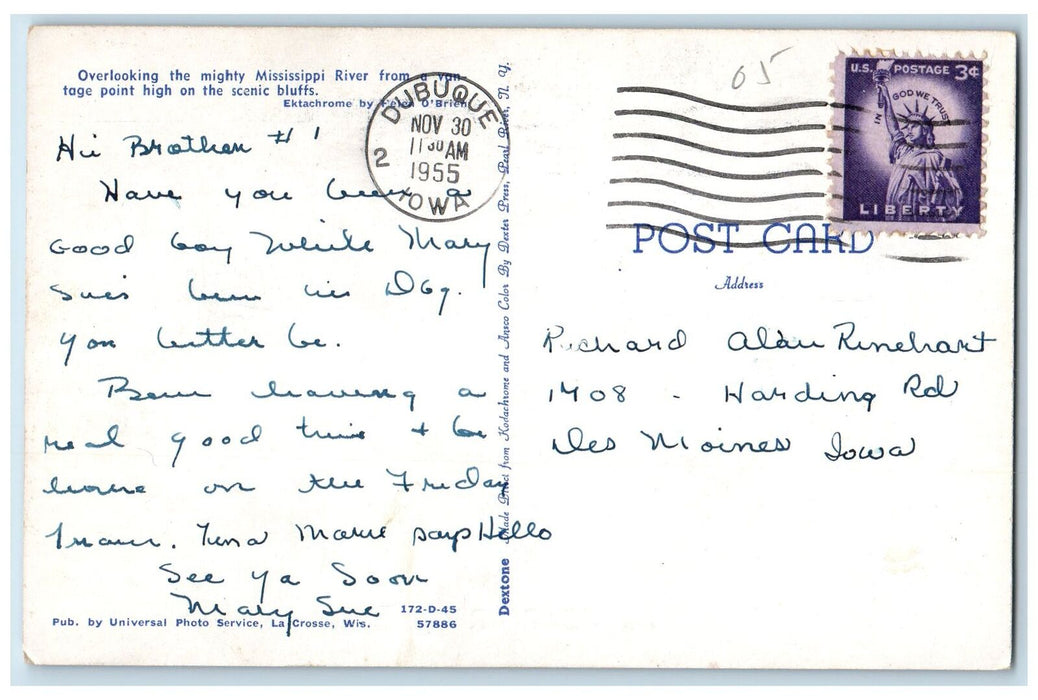 Overlooking the mighty Mississippi River from a van-
tage point high on the scenic bluffs.
Ektachrome by Helen O'Brien
Hi Brother #1
Have you been a
good boy while Mary
Sue's been in Dbq.
You better be.
Been having a
real good time & be
home on the Friday
train. Marie says Hello
See ya Soon
Mary Sue
172-D-45
Pub. by Universal Photo Service, La Crosse, Wis. 57886
Dextone Made Direct from Kodachrome and Ansco Color By Dexter Press, Pearl River, N. Y.
DUBUQUE
NOV 30
11 30 AM
1955
2
IOWA
05
U.S. POSTAGE 3¢
IN GOD WE TRUST
LIBERTY
POST CARD
Address
Richard Alan Rinehart
1408 - Harding Rd
Des Moines Iowa